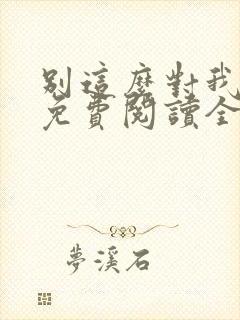 別這麼對我
免費閱讀全
夢溪石